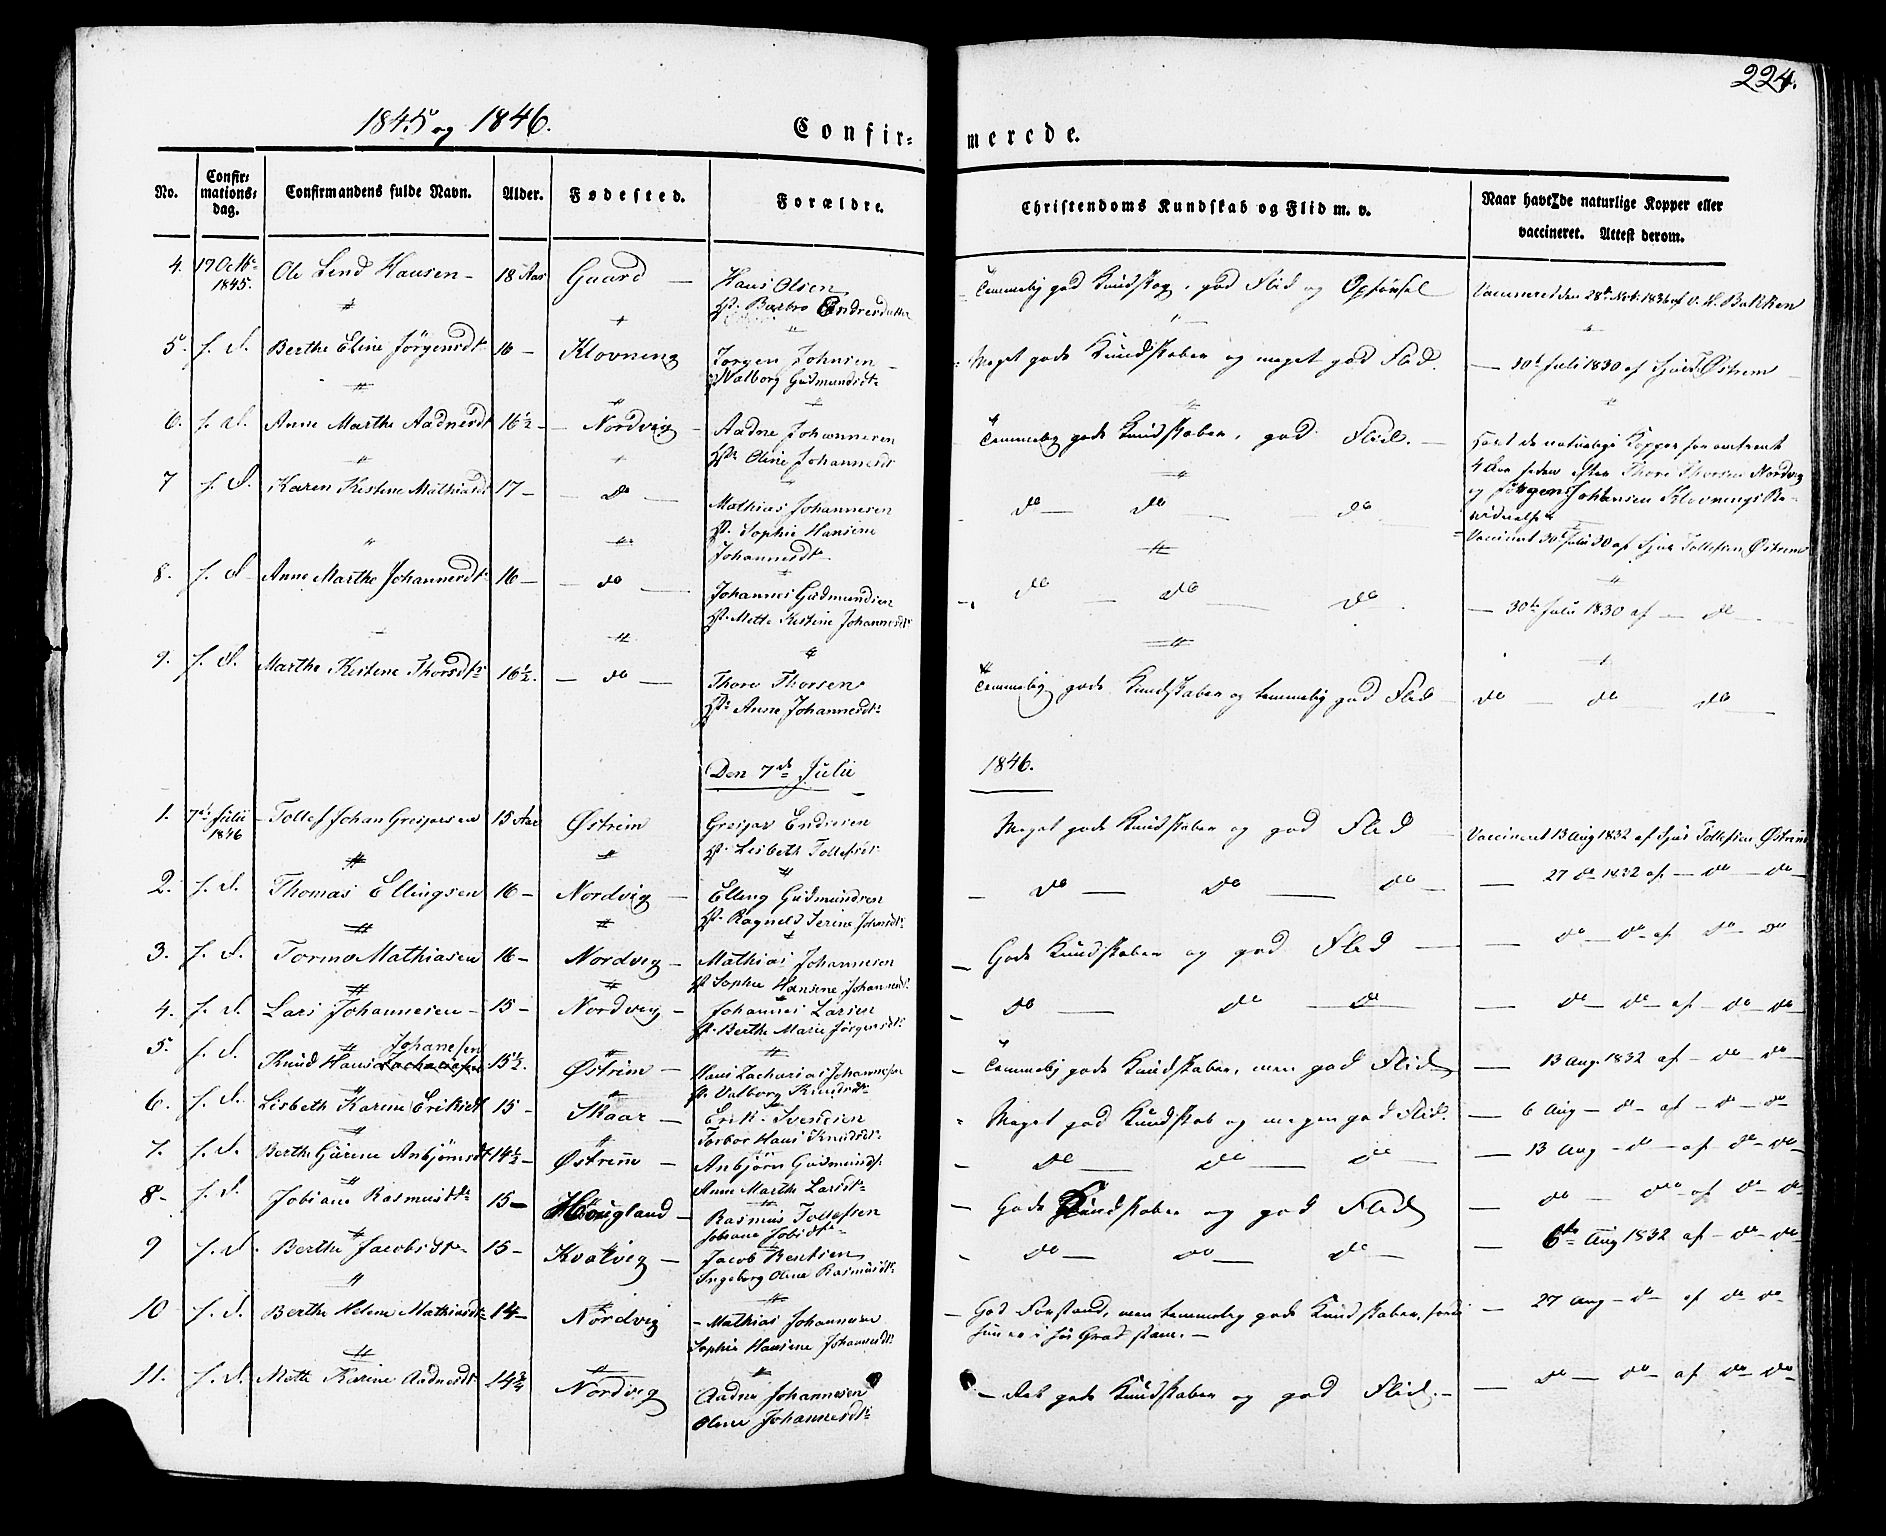 224.
1845 og 1846. Confirmerede.
No. Confirmationsdag. Confirmandens fulde Navn. Alder. Fødested. Forældre. Christendoms Kundskab og Flid m. v. Naar havt de naturlige Kopper eller vaccineret. Attest derom.
4. 17 Octbr 1845. Ole Hansen 18 Aar Gaard Hans Olsen
Barbro Endresdatter
god Flid og Opførsel
5. s. d. Berthe Eline Jørgensdt 16 Klovning Jørgen Johnsen
Valborg Gudmundsdt
Meget gode Kundskaber og meget god Flid.
30te Juli 1830 af Østrem
6. s. d. Anne Marthe Aadnesdt 16½ Nordvig Aadne Johannesen
Oline Johannesdt
Temmelig gode Kundskaber, god Flid.
Havt de naturlige Kopper for omtrent
4 Aar siden efter Thore Thorsen Nordvig
og Jørgen Johnsen Klovnings Be-
vidnelse
7 s. d. Karen Kistine Mathiasdt 17 do
Mathias Johannesen
Sophie Hansine
Johannesdt
do do do
Vaccineret 30te Juli 30 af Sjur Tollefsen Østrem
8. s. d. Anne Marthe Johannesdt 16 do
Johannes Gudmundsen
Mette Kistine Johannesdt
do do do
30te Juli 1830 af do
9. s. d. Marthe Kistine Thorsdt 16½. do
Thore Thorsen
Anne Johannesdt
Temmelig gode Kundskaber og temmelig god Flid
do do do
Den 7de Julii 1846.
1. 7de Julii 1846 Tollef Johan Gresjersen 15 Aar Østrem
Endresen
Lisbeth Tollefsdt
Meget gode Kundskaber og god Flid
Vaccineret 13 Aug 1832 af Sjur Tollefsen Østrem
2. s. d. Thomas Ellingsen 16 Nordvig
Elling Gudmundsen
Ragnild Serine
do do do
27 do 1832 af do do
3. s. d. Tormo Mathiasen 16 Nordvig
Mathias Johannesen
Sophie Hansine Johannesdt
Gode Kundskaber og god Flid
do do af do do
4. s. d. Lars Johannesen 15 Nordvig
Johannes Larsen
Berthe Marie Jørgensdt
do do do
do do af do do
5. s. d. Knud Hans Johanesen 15½. Østrem
Hans Zacharias Johannesen
Valborg Knudsdt
Temmelig gode Kundskaber, men god Flid
13 Aug 1832 af do do
6. s. d. Lisbeth Karine Eriksdt 15 Skaar
Erik Svendsen
Knudsdt
Meget god Kundskab og megen god Flid.
6 Aug do af do do
7. s. d. Berthe Gurine Anbjørnsdt 14½ Østrem
Anbjørn Gudmunds.
Anne Marthe Larsdt
do do do
13 Aug do af do do
8 s. d. Jobiane Rasmusdt 15 Høugland
Rasmus Tollefsen
Johane Jobsdt
Gode Kundskaber og god Flid
do do af do do
9 s. d. Berthe Jacobsdt 15 Kvalvig
Jacob Bentsen
Ingeborg Oline Rasmusdt
do do do
6te Aug 1832 af do do
10 s. d. Berthe Helene Mathiasdt 14 Nordvig
Mathias Johannesen
Sophie Hansine Johannesdt
God Forstand, men temmelig gode Kundskaber, fordi
hun er i høi Grad stam.
27 Aug do af do do
11. s. d. Mette Karine Aadnesdt 14¾ Nordvig
Aadne Johannesen
Oline Johannesdt
gode Kundskaber og god Flid.
do do af do do